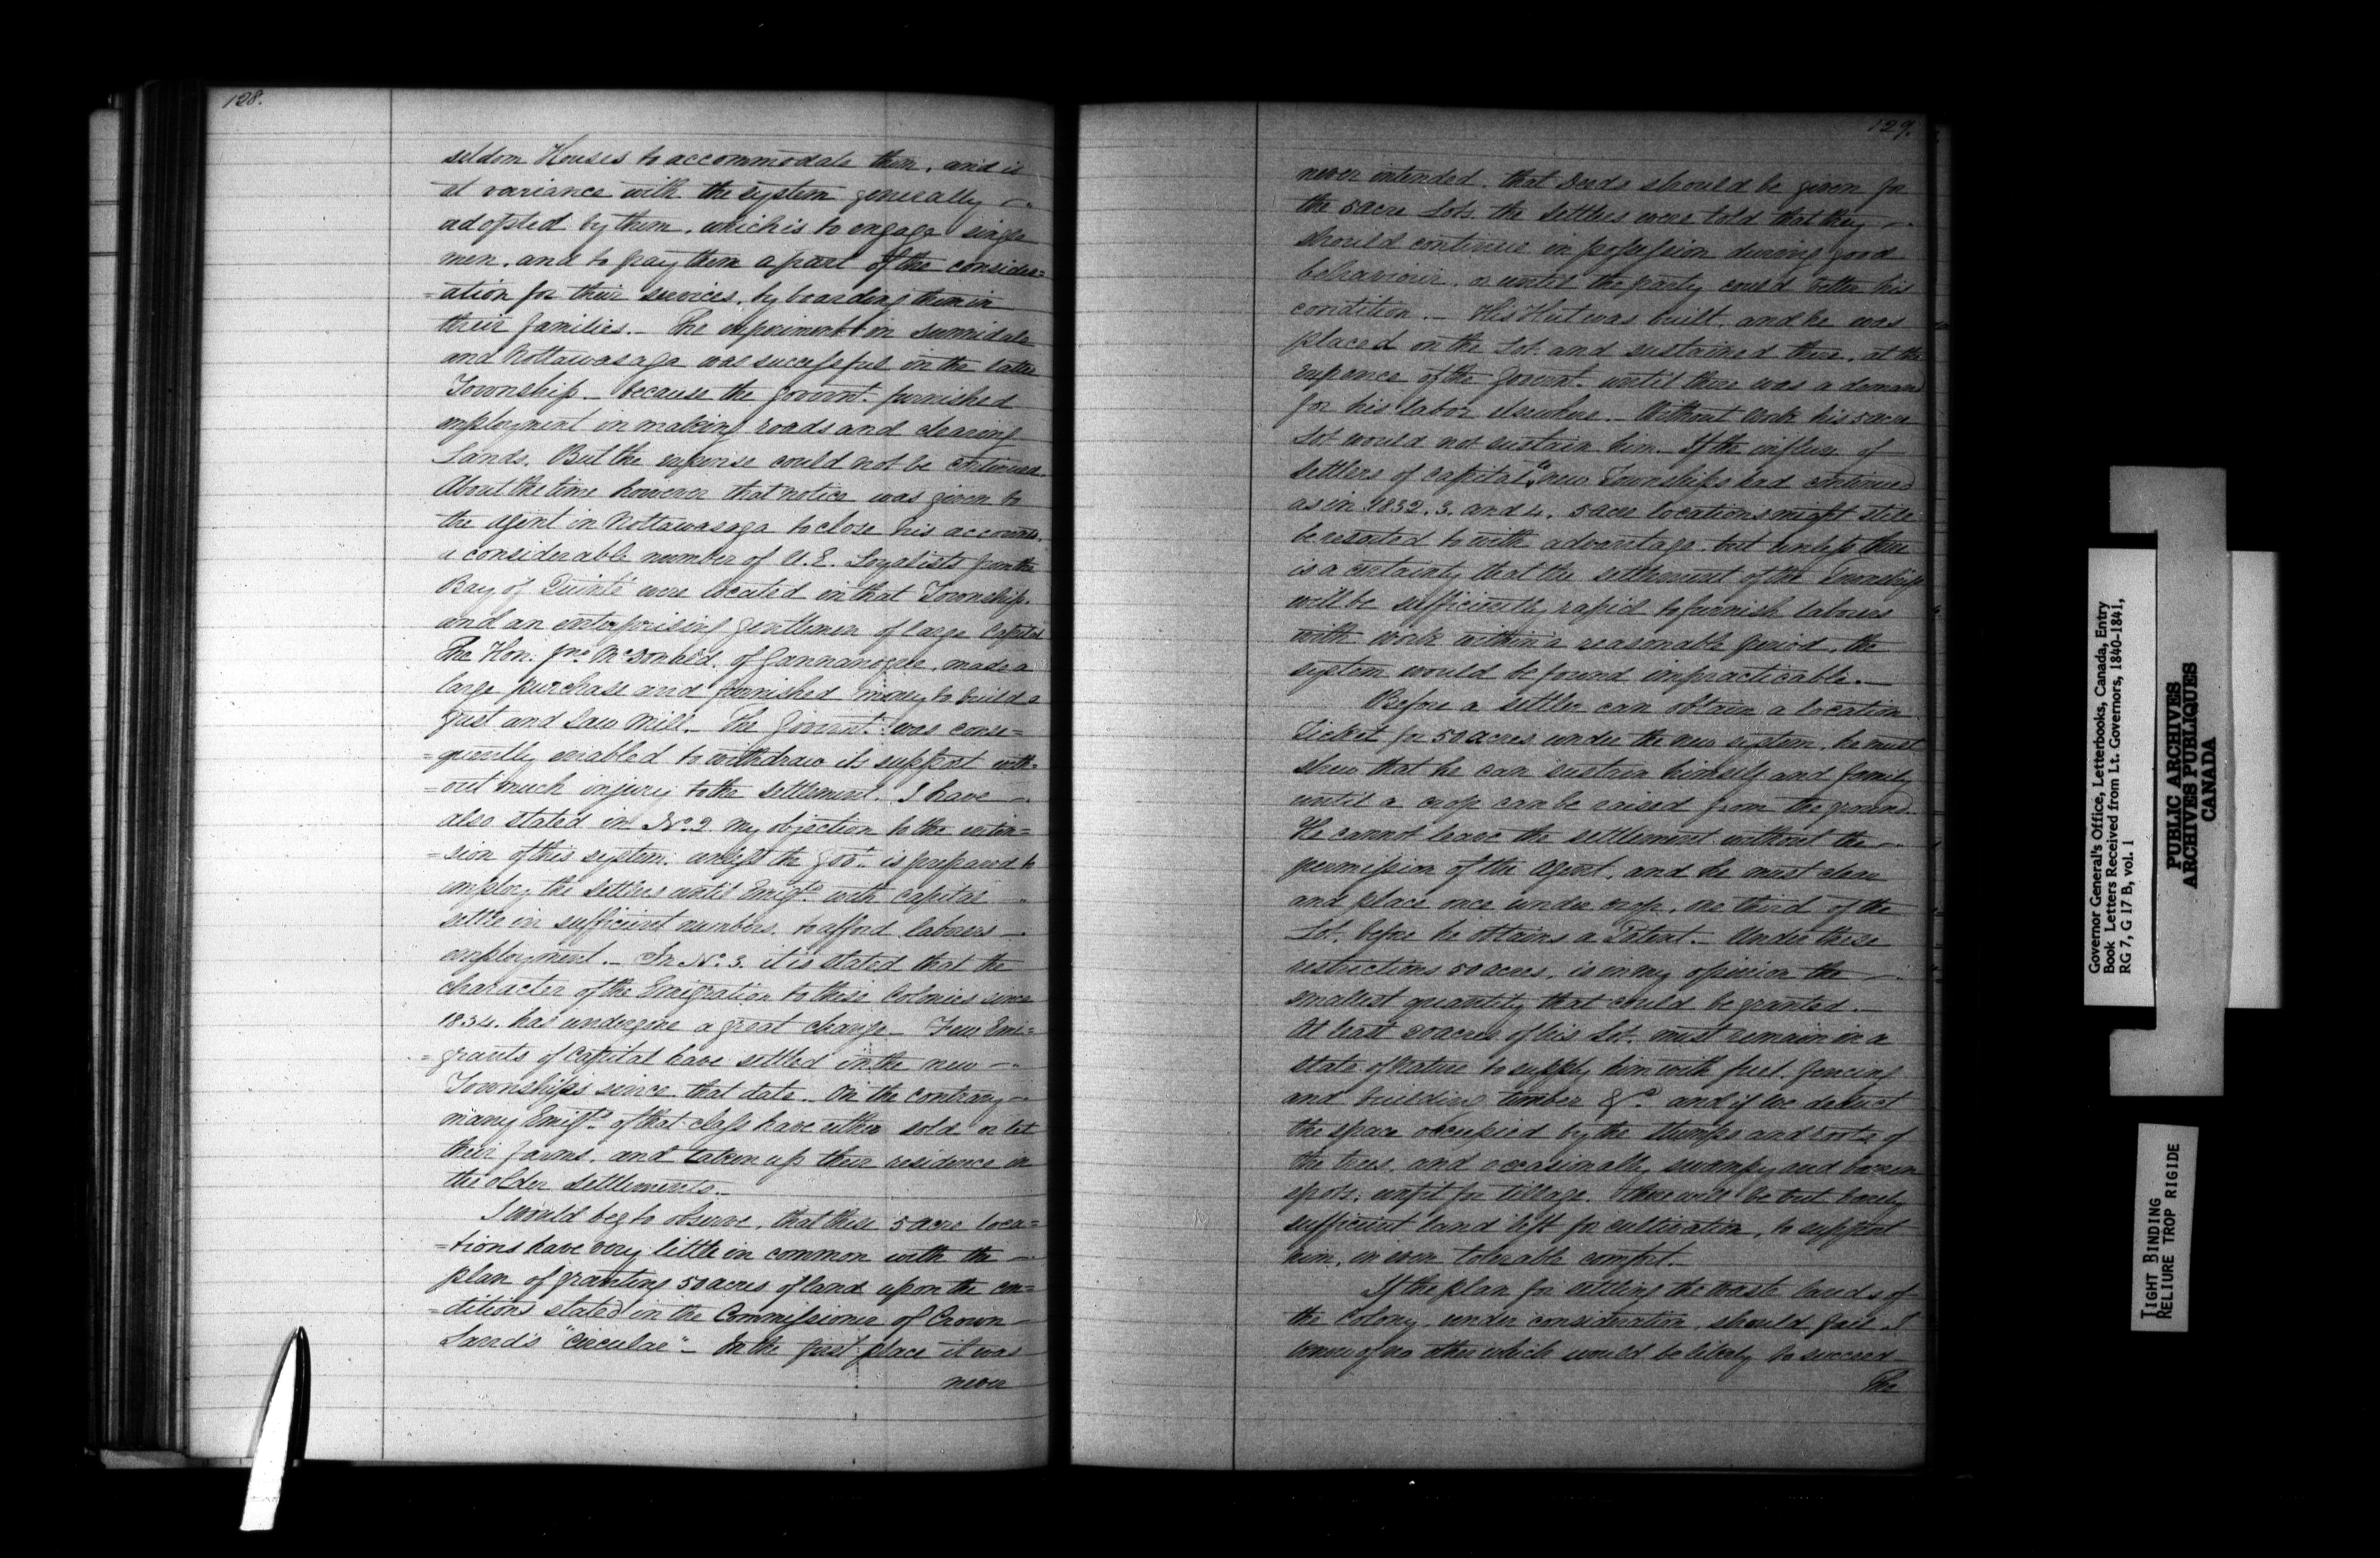 128.
seldom Houses to accommodate them, and is
at variance with the system generally
adopted by them, which is to engage single
men, and to pay them a part of the consider=
=ation for their services, by boarding them in
their families._ The experiment in Sunnidale
and Nottawasaga was successful in the latter
Township_ because the Governt. furnished
employment in making roads and clearing
Lands. But the expense could not be continued.
About the time however that notice was given to
the Agent in Nottawasaga to close his accounts,
a considerable number of U.E. Loyalists from the
Bay of Quinté were located in that Township,
and an enterprising gentleman of large Capital
The Hon: Jno. McDonald, of Gannanoque, made a
large purchase and furnished money to build a
Grist and Saw Mill._ The Governt. was conse=
=quently enabled to withdraw its support with=
=out much injury to the Settlement. I have
also stated in No. 2 my objection to the exten=
=sion of this system, unless the Govt. is prepared to
employ the Settlers until Emigts. with capital
settle in sufficient numbers, to afford laborers
employment._ In No. 3. it is stated that the
character of the Emigration to these Colonies since
1834. has undergone a great change_ Few Emi=
=grants of Capital have settled in the new
Townships since that date. On the contrary
many Emigts. of that class have either sold or let
their farms, and taken up their residence in
the older settlements._
I would beg to observe, that these 5 acre loca=
=tions have very little in common with the
plan of granting 50 acres of land upon the con=
=ditions stated in the Commissioner of Crown
Land's "Circular"_ In the first place it was
never
129.
never intended, that Deeds should be given for
the 5 acre Lots, the Settlers were told that they
should continue in possession during good
behaviour, or until the party could better his
condition._ His Hut was built, and he was
placed on the Lot, and sustained there, at the
expence of the Governt. until there was a demand
for his labor elsewhere._ Without work his 5 acre
Lot would not sustain him._ If the influx of
Settlers of Capital to new Townships had continued
as in 1832. 3. and 4. 5 acre locations might still
be resorted to with advantage, but unless there
is a certainty that the settlement of the Township
will be sufficiently rapid to furnish laborers
with work within a reasonable period, the
system would be found impracticable._
Before a settler can obtain a location
Ticket for 50 acres under the new system, he must
shew that he can sustain himself and family
until a crop can be raised from the ground.
He cannot leave the settlement without the
permission of the Agent, and he must clear
and place once under crop, one third of the
Lot, before he obtains a Patent._ Under these
restrictions 50 acres, is in my opinion the
smallest quantity that could be granted._
At least 20 acres of his Lot, must remain in a
state of Nature to supply him with fuel, fencing
and building timber &c. and if we deduct
the space occupied by the stumps and roots of
the trees, and occasionally swampy and barren
spots, unfit for tillage. There will be but barely
sufficient land left for cultivation, to support
him, in even tolerable comfort._
If the plan for settling the waste lands of
the Colony, under consideration, should fail, I
know of no other which would be likely to succeed_
The
Governor General's Office, Letterbooks, Canada, Entry
Book Letters Received from Lt. Governors, 1840-1841,
RG 7, G 17 B, vol. 1
PUBLIC ARCHIVES
ARCHIVES PUBLIQUES
CANADA
TIGHT BINDING
RELIURE TROP RIGIDE